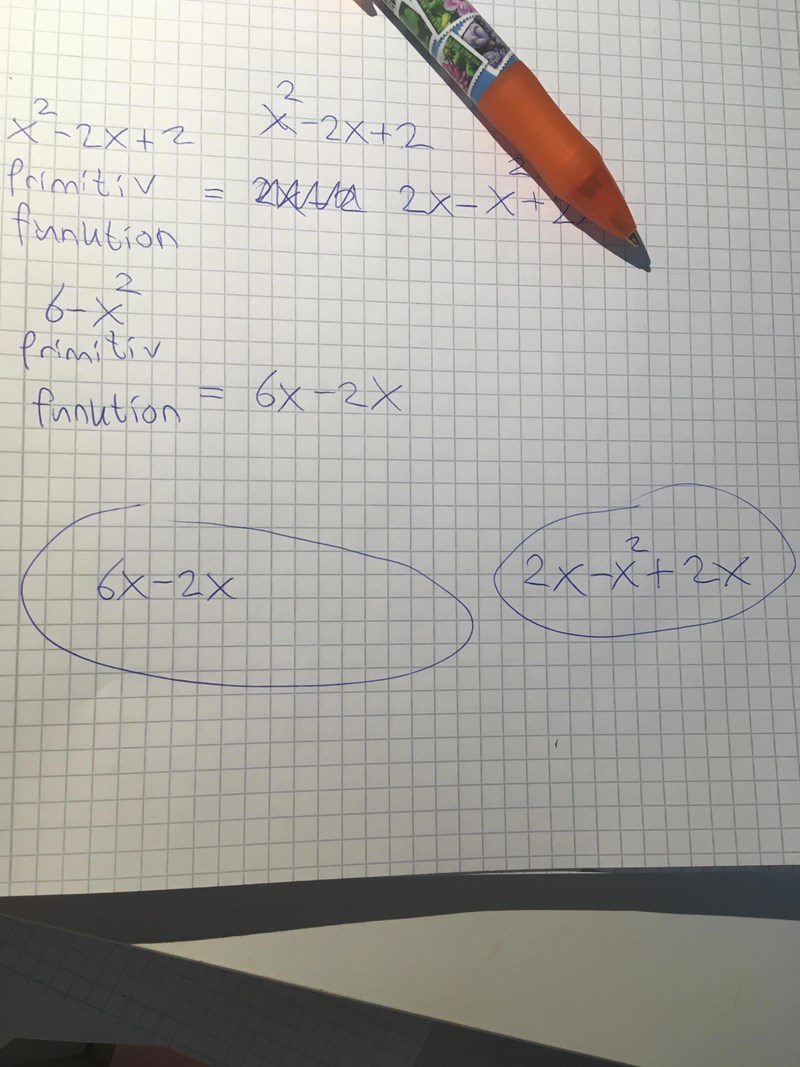 x²-2x+2 x²-2x+2
Primitiv = 2x-x²+
funution
6-x²
primitiv
funution = 6x-2x
6x-2x 2x-x²+2x